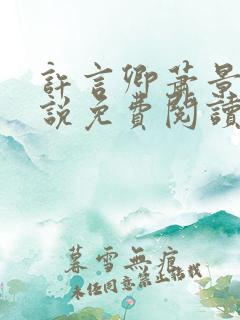 許言卿蕭景
說免費閱讀
暮雪無痕
未經同意禁止轉載